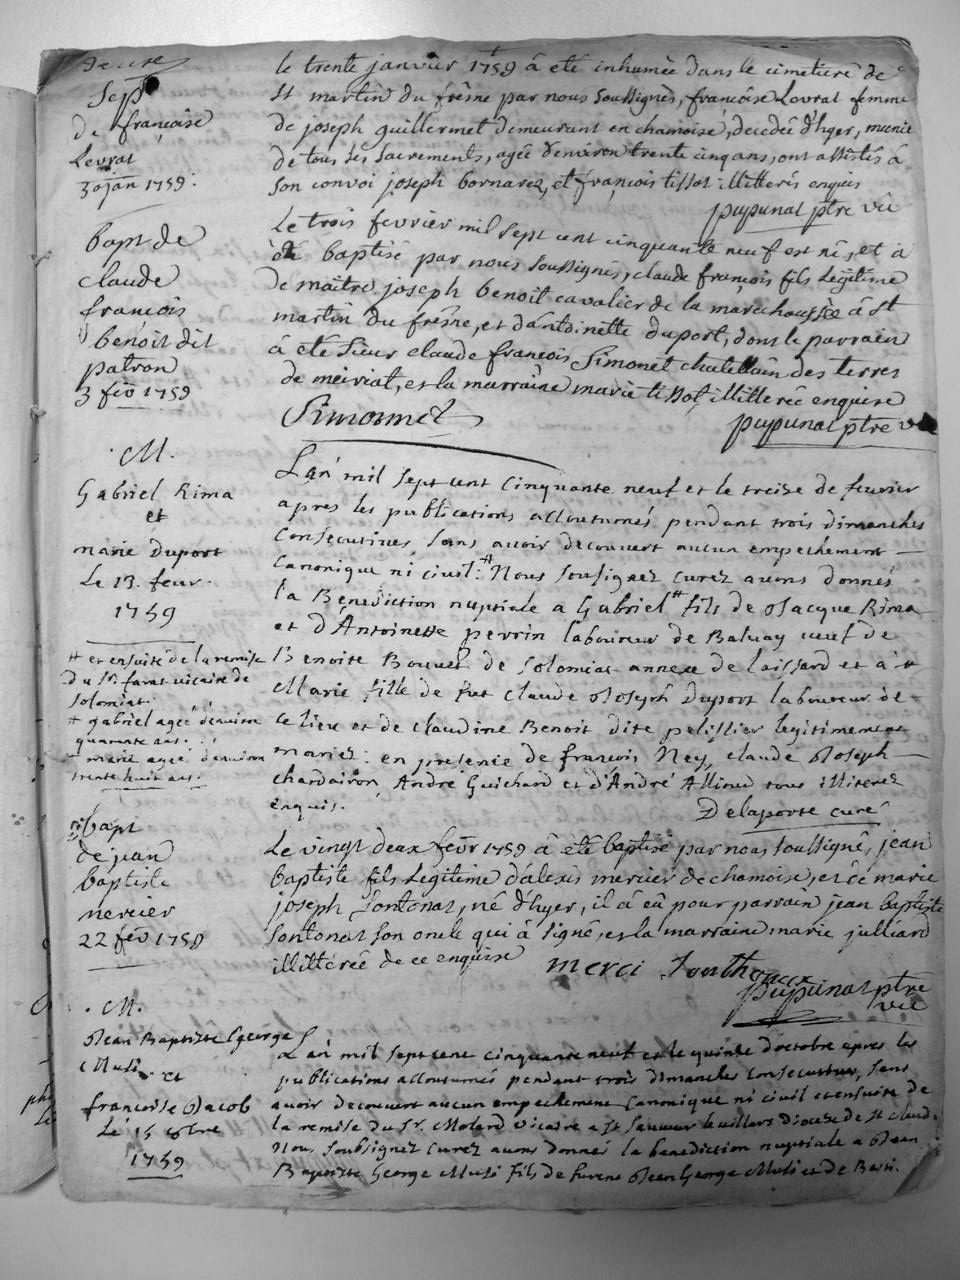 Sep
de françoise
Levrat
30 jan 1759.
le trente janvier 1759 à eté inhumée dans le cimetiere de
St martin du frêne par nous soussignés, françoise Levrat femme
de joseph guillermet demeurant en chamoise, decedée d'hyer, munie
de tous ses sacrements, agée d'environ trente cinq ans, ont assistés à
son convoi joseph bornarez, et françois tissot illitterés enquis
pupunat ptre vic
bapt de
claude
françois
benoit dit
patron
3 fév 1759
Le trois fevrier mil sept cent cinquante neuf est né, et à
été baptisé par nous soussignés, claude françois fils Legitime
De maître joseph benoit cavalier de la marechaussée à St
martin du frêne, et d'antoinette duport, dont le parrain
à eté sieur claude françois Simonet chatellain des terres
de meiriat, et la marraine marie tissot illitterée enquise
Simonnet
pupunat ptre vic
M.
Gabriel Rima
et
marie Duport
Le 13. feur.
1759
L'an mil sept cent cinquante neuf et le treise de feurier
apres les publications accoutumés pendant trois dimanches
consecutives sans avoir decouvert aucun empechement
canonique ni civil # Nous soussignez curez avons donnés
la Benediction nuptiale a Gabriel # fils de Jacque Rima
et d'Antoinette perrin laboureur de Baluay veuf de
Benoite Bouvet de Solomiat annexe de laissard et à +
Marie fille de fut Claude Joseph Duport laboureur de
ce lieu et de claudine Benoit dite pelissier legitimement
mariez: en presence de francois Ney, claude Joseph
chardairon, André Guichard et d'André Alliod tous illiterez
enquis.
Delaporte curé
# et ensuite de la remise
du Sr. farat vicaire de
solomiat.
# gabriel agée d'environ
quarante ans.
+ marie agée d'environ
trente huit ans.
bapt
de jean
baptiste
mercier
22 fév 1759
Le vingt deux fevr 1759 à été baptisé par nous soussigné, jean
baptiste fils Legitime d'alexis mercier de chamoise, et de marie
joseph Sontonat, né d'hyer, il à eu pour parrain jean baptiste
Sontonat son oncle qui à signé, et la marraine marie julliard
illitterée de ce enquise
merci
pupunat ptre
vic
M.
Jean Baptiste George
Musi et
francoise Jacob
Le 15 8bre
1759
L'an mil sept cent cinquante neuf et le quinse d'octobre apres les
publications accoutumés pendant trois dimanches consecutives, sans
avoir decouvert aucun empechement canonique ni civil et ensuite de
la remise du Sr. Molard vicaire a St Sauveur le villars diocese de St claude
Nous soussignez curez avons donnés la benediction nuptiale a Jean
Baptiste George Musi fils de Jean George Musi et de